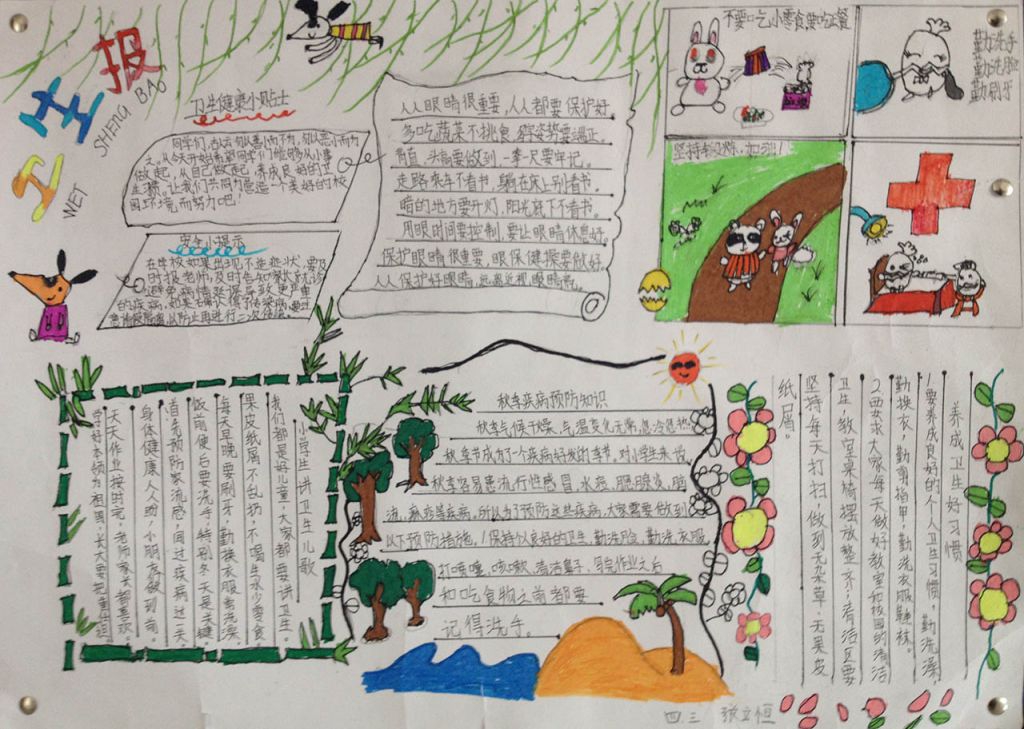 卫生报
WEI
SHENG BAO
卫生健康小贴士
同学们,古云:勿以善小而不为,勿以恶小而为
之。从今天开始希望同学们能够从小事
做起,从自己做起,养成良好的卫
生习惯。让我们共同为营造一个美好的校
园环境而努力吧!
安全小提示
在学校如果出现不适症状,要及
时报老师,及时告知家长就诊
的疾病,如果
人人眼睛很重要,人人都要保护好。
多吃蔬菜不挑食,写字姿势要端正。
背直、头高要做到,一拳一尺要牢记。
走路乘车不看书,躺在床上别看书。
暗的地方要开灯,阳光底下不看书。
用眼时间要控制,要让眼睛休息好。
保护眼睛很重要,眼保健操要做好。
人人保护好眼睛,远离近视眼睛亮。
不要吃小零食要吃正餐
勤洗手
勤洗脸
勤刷牙
坚持
小学生讲卫生儿歌
我们都是好儿童,大家都要讲卫生。
果皮纸屑不乱扔,不喝生水少零食
每天早晚要刷牙,勤换衣服常洗澡
饭前便后要洗手,特别冬天是关键
道预防家流感,间过疾病过一天
身体健康人人盼,小朋友做到前。
天天作业按时完,老师家长都喜欢。
学好本领为祖国,长大要把重任担
秋季疾病预防知识
秋季气候干燥,气温变化无常,忽冷忽热
秋季节成为了一个疾病好发的季节,对小学生来说
秋季容易患流行性感冒,水痘,腮腺炎,脑
炎,麻疹等疾病。所以为了预防这些疾病,大家需要做到
以下预防措施,1保持以良好的卫生,勤洗脸、勤洗衣服
打喷嚏,咳嗽,清洁鼻子,写完作业之后
和吃食物之前都要
记得洗手。
养成卫生好习惯
1要养成良好的个人卫生习惯,勤洗澡,
勤换衣,勤剪指甲,勤洗衣服鞋袜。
2要求大家每天做好教室和校园的清洁
卫生,教室桌椅摆放整齐,清洁区要
坚持每天打扫,做到无杂草,无果皮
纸屑。
四、三 张立恒